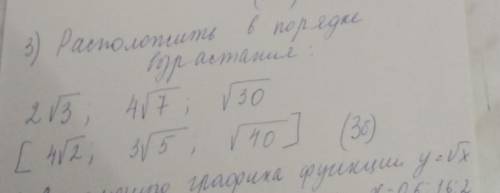 3) Расположить в порядке
возрастания:
2√3; 4√7; √30
[4√2; 3√5, √40] (3б)
графика функции y=√x